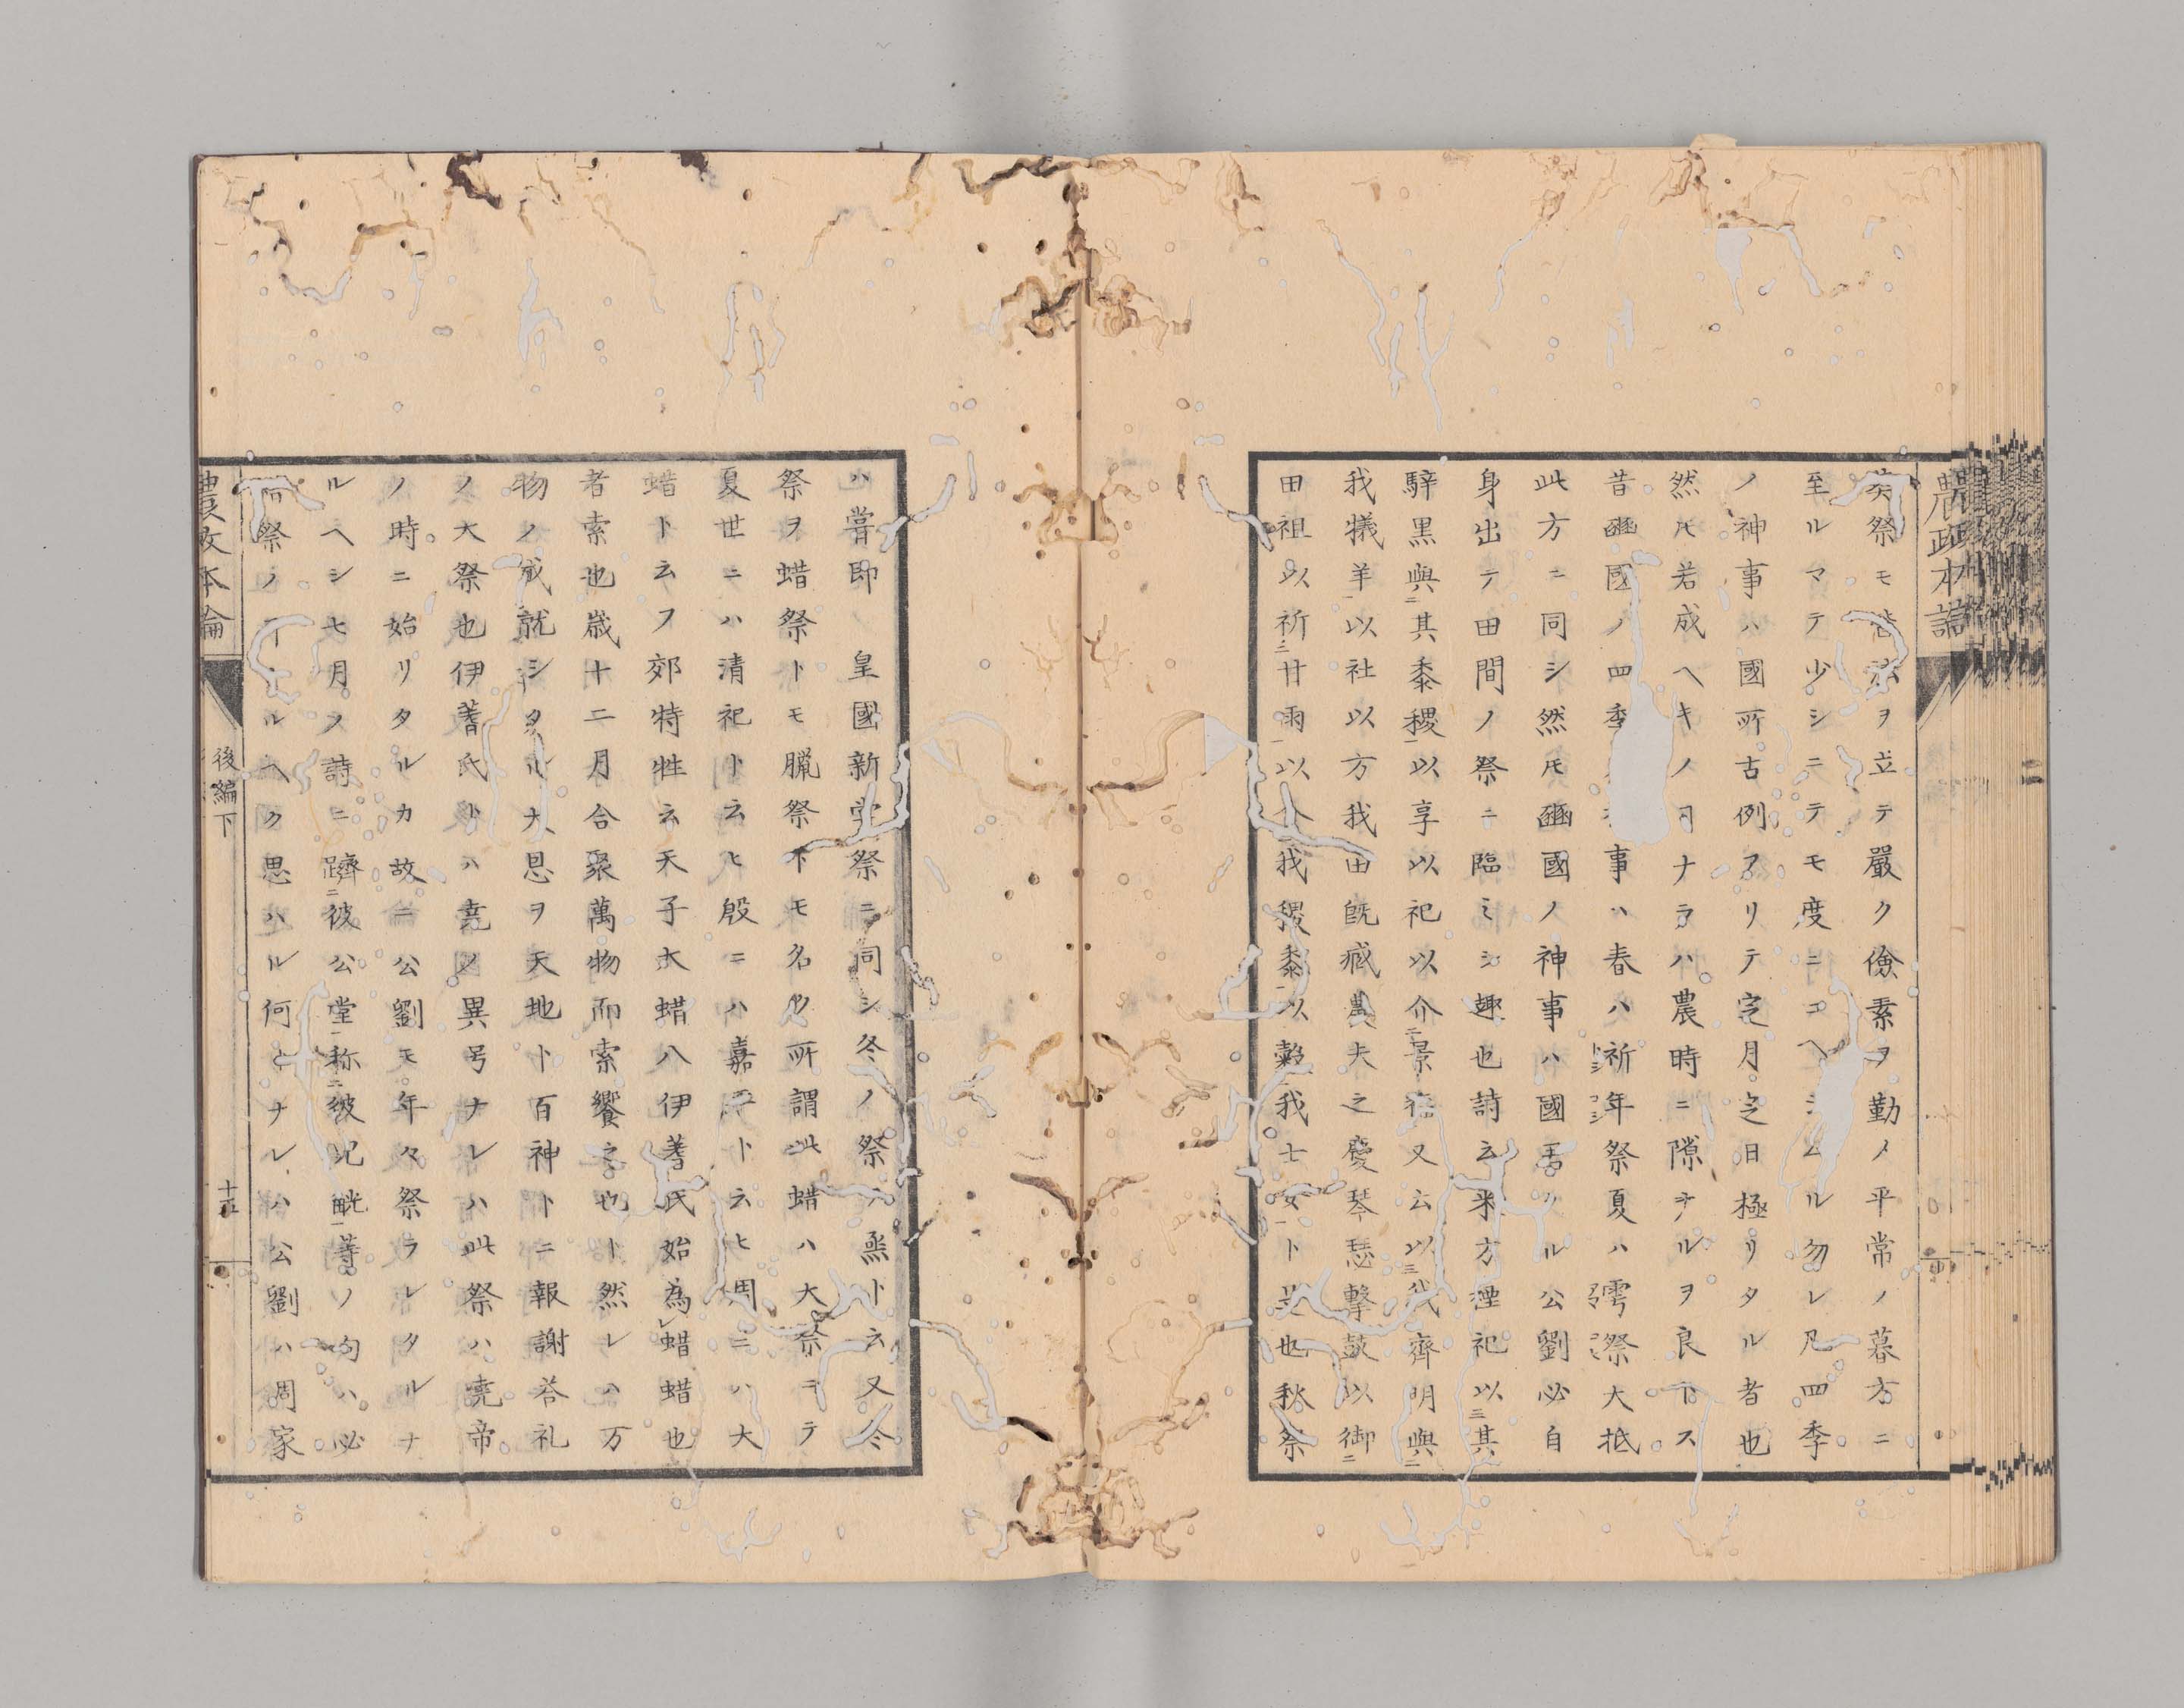 農政本論
葬祭モ法ヲ立テ嚴ク儉素ヲ勤メ平常ノ暮方ニ
至ルマテ少シニテモ度ニコヘシムル勿レ凡四季
ノ神事ハ國所古例アリテ定月定日極リタル者也
然ㇳモ若成ヘキノ丁ナラハ農時ニ隙ナルヲ良トス
昔豳國ノ四季 事ハ春ハ祈年祭夏ハ雩祭大抵
此方ニ同シ然ㇳモ豳國ノ神事ハ國君タル公劉必自
身出テ田間ノ祭ニ臨ミシ趣也詩云来方禋祀以三其
騂黒與二其黍稷一以享以祀以介二景福又云以三我齊明與二
我犧羊以社以方我田既臧農夫之慶琴瑟擊鼓以御二
田祖以祈三甘雨一以介我稷黍一以穀我士女一ト是也秋祭
ハ嘗即ノ皇國新嘗祭ニ同シ冬ノ祭ヲ烝ト云又冬
祭ヲ蜡祭トモ臘祭トモ名ク所謂此蜡ハ大祭ニテ
夏世ニハ清祀ト云ヒ殷ニハ嘉平ト云ヒ周ニハ大
蜡ト云フ郊特牲云天子大蜡八伊耆氏始為レ蜡蜡也
者索也歳十二月合聚萬物而索饗之也ト然レハ万
物ノ成就シタル大恩ヲ天地ト百神トニ報謝荅礼
ノ大祭也伊耆氏トハ堯ノ異号ナレハ此祭ハ堯帝
ノ時ニ始リタルカ故ニ公劉モ年々祭ラレタルナ
ルヘシ七月ノ詩ニ躋二彼公堂一称二彼兕觥一等ノ句ハ必
祭ノ丁ナルヘク思ハル何トナレハ公劉ハ周家
農政本論
後編下
十五